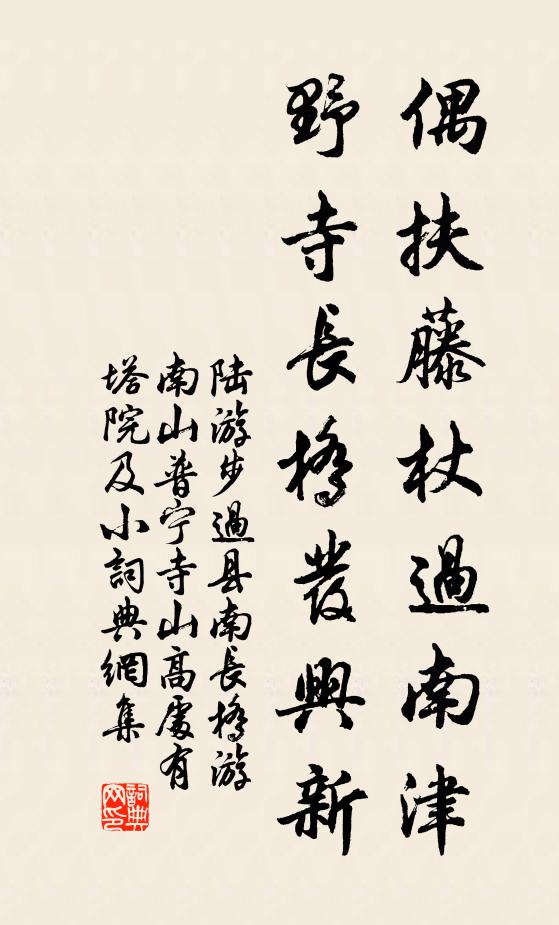 偶扶藤杖過南津
野寺長橋發興新
陆游步過县南長橋游
南山普宁寺山高處有
塔院及小詞典網集
詞典网印